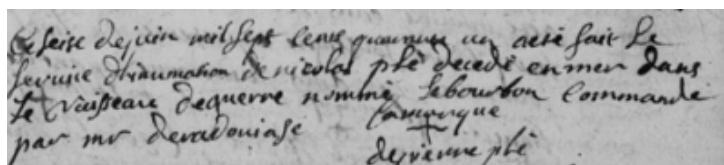 Ce seise de juin mil sept cens quarante un aeté fait le
servise dhinumation de nicolas plé decedé en mer dans
le vaisseau de guerre nommé le bourbon Commandé
par mr
la marque
plé